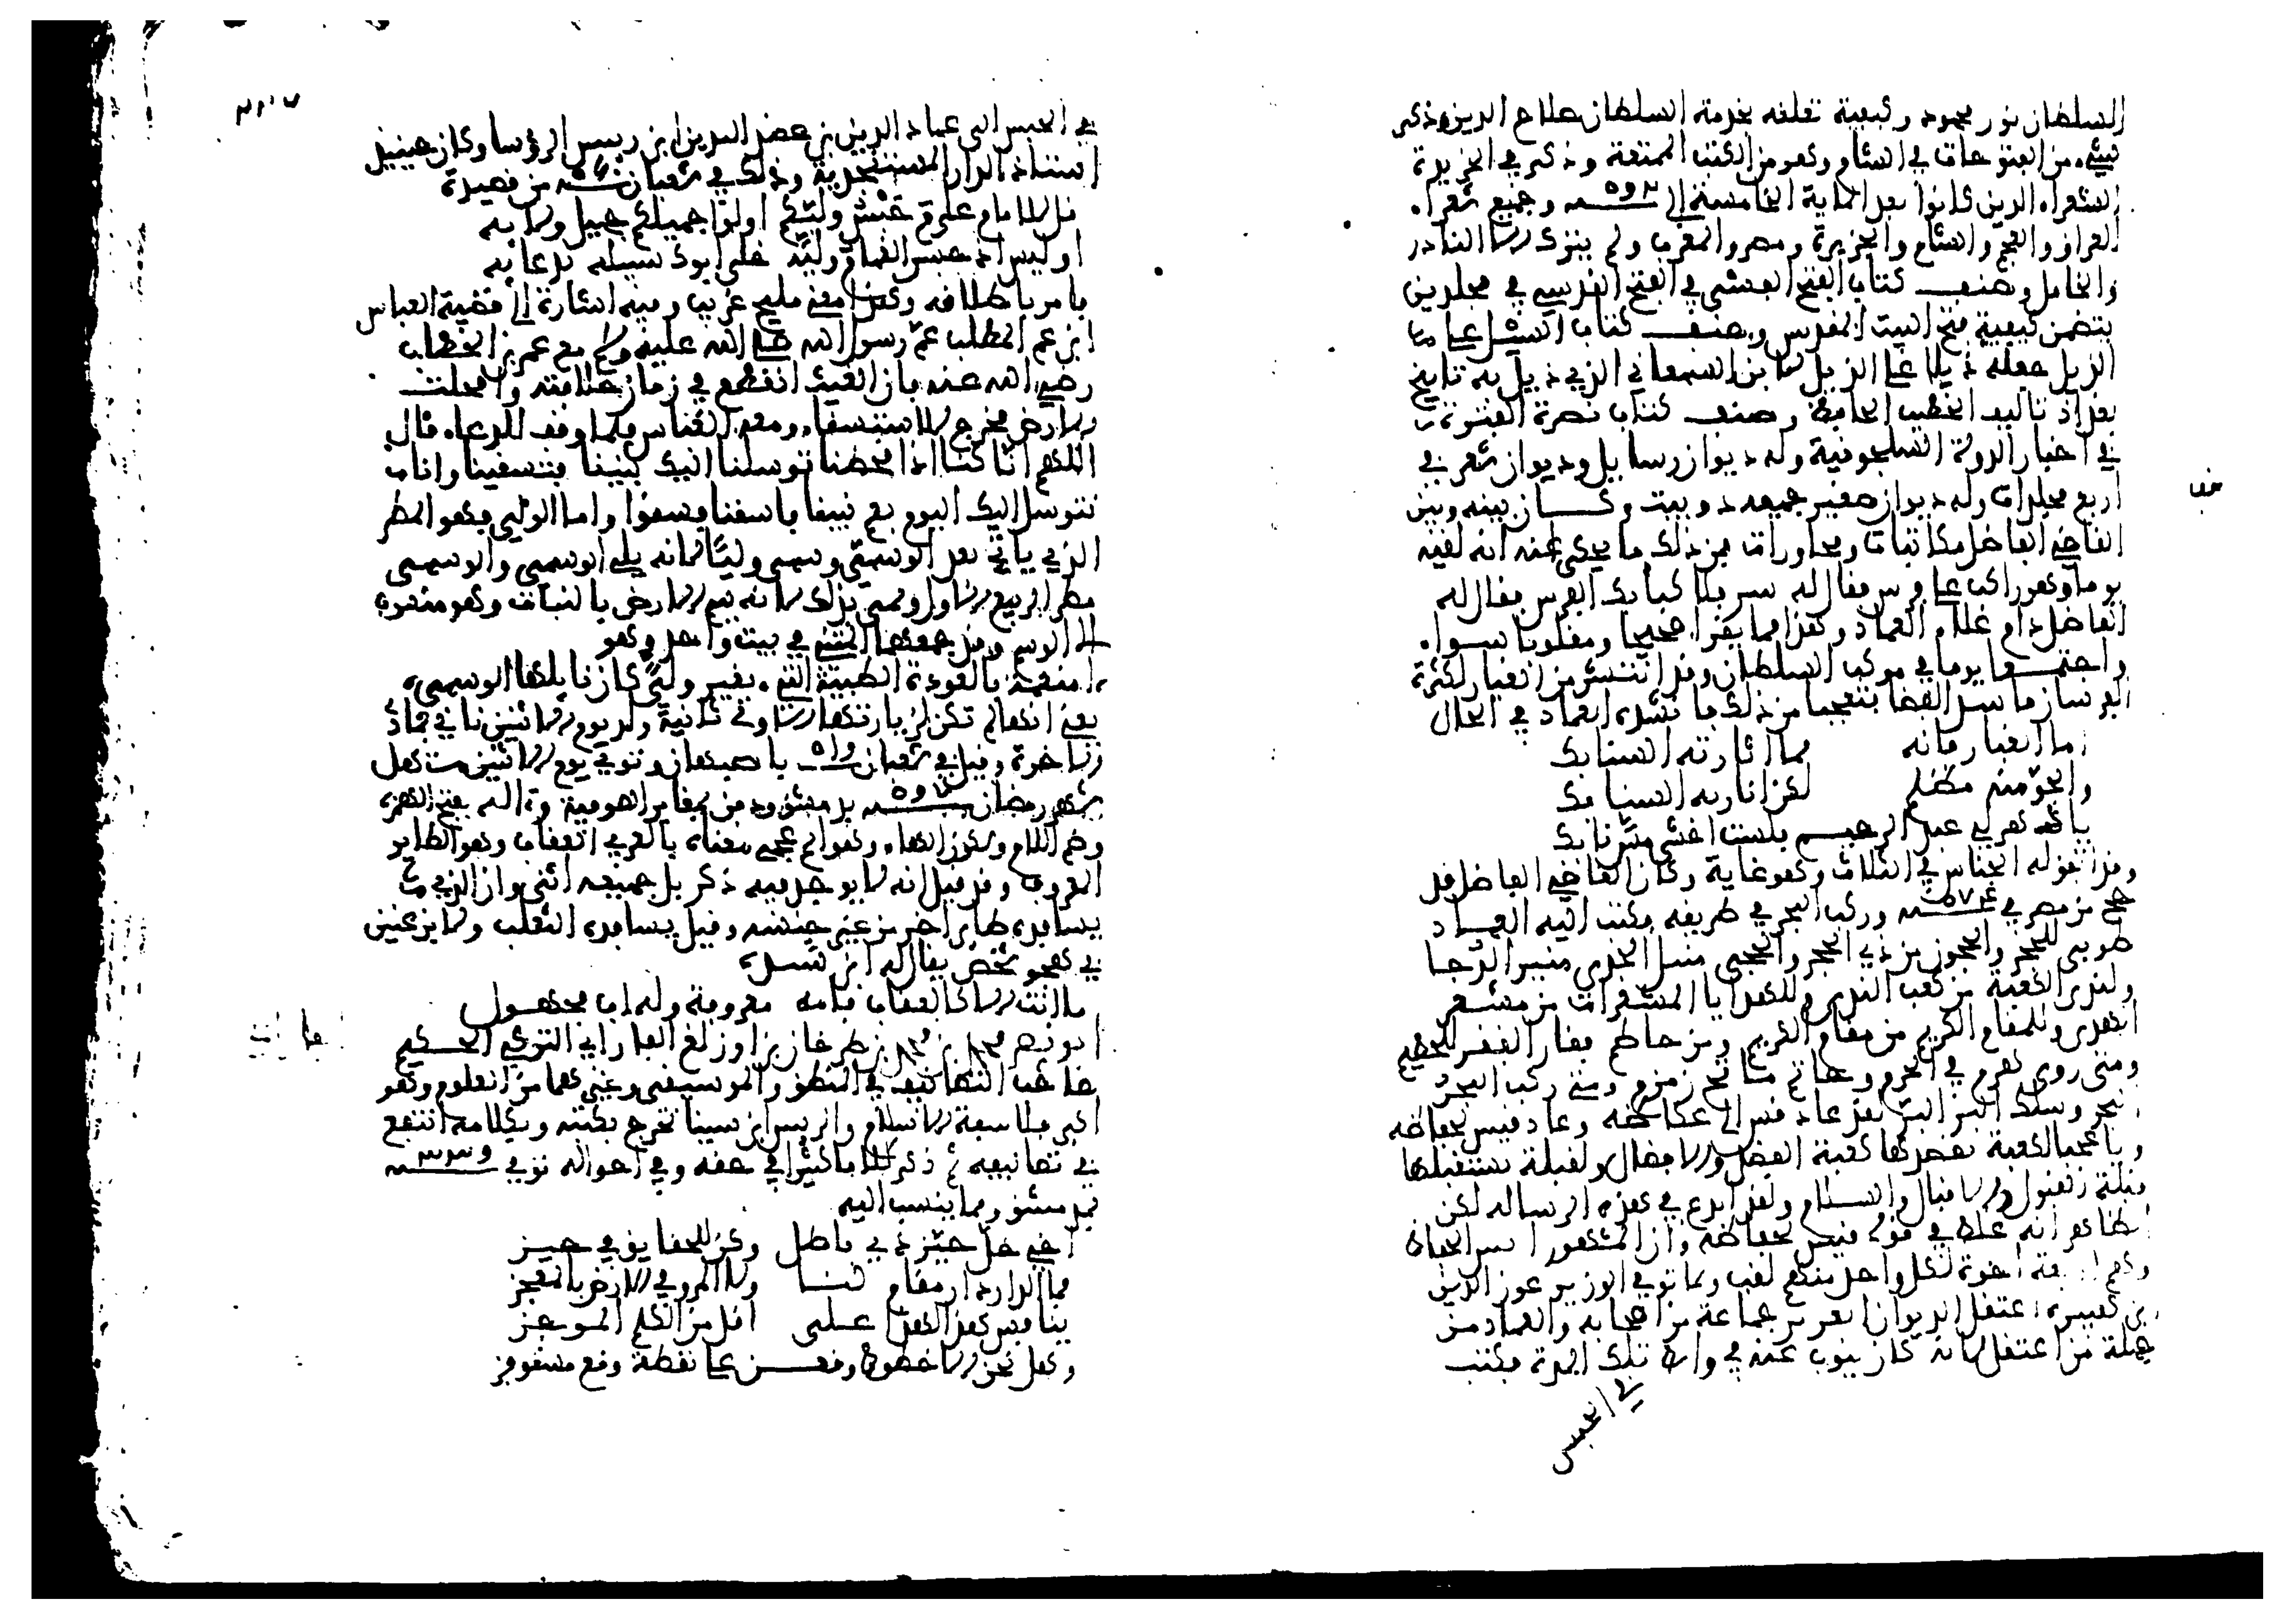 السلطان نور محمود وكيفية تعلقه بخدمة السلطان صلاح الدين وذكر
شيء من الفتوحات في الشام وهو من الكتب الممتعة وذكر في الخريدة
الشعراء الذين كانوا بعد المائة الخامسة إلى ٥٩٢ سنة وجميع شعراء
العراق والعجم والشام والجزيرة ومصر والمغرب ولم يترك إلا النادر
والخامل وصنف كتاب الفتح القسي في الفتح القدسي في مجلدين
يتضمن كيفية فتح البيت المقدس وصنف كتاب السيل على
الذيل جعله ذيلا على الذيل لابن السمعاني الذي ذيل به تاريخ
بغداد تاليف الخطيب الحافظ وصنف كتاب نصرة الفترة
في اخبار الدولة السلجوقية وله ديوان رسايل وديوان شعر في
اربع مجلدات وله ديوان صغير جميعه دوبيت وكان بينه وبين
القاضي الفاضل مكاتبات ومحاورات فمن ذلك ما يحكى عنه انه لقيه
يوما وهو راكب على فرس فقال له سر فلا كبا بك الفرس فقال له
الفاضل دام علاء العماد وهذا مما يقرا صحيحا ومقلوبا سواء
واجتمعا يوما في موكب السلطان وقد انتشر من الغبار لكثرة
الفرسان ما سد الفضا فتعجبا من ذلك فانشده العماد في الحال
اما الغبار فانه مما اثارته السنابك
والجو منه مظلم لكن انار به السنابك
يا دهر لي عبد الرحيم فلست اخشى مس نابك
وقد اتفق له الجناس في الثلاث وهو غاية وكان القاضي الفاضل قد
حج من مصر في ٥٧٤ سنة وركب البحر في طريقه فكتب اليه العماد
طوبى للحجر والحجون من ذي الحجر والحجى منيل الجدى منير الدجا
ولندى الكعبة من كعب الندى وللهدايا المشعرات من مشعر
الهدى وللمقام الكريم من مقام الكريم ومن حاطم فقار الفقر للحطيم
ومتى روى هرم في الحرم وحاتم ماتح زمزم ومتى ركب البحر
البحر وسلك البر البر لقد عاد قس الى عكاظه وعاد قيس لحفاظه
ويا عجبا لكعبة يقصدها كعبة الفضل والافضال ولقبلة يستقبلها
قبلة القبول والاقبال والسلام ولقد ابدع في هذه الرسالة لكن
الظاهر انه غلط في قوله قيس لحفاظه وان المشهور انس الحفاظ
وهم اربعة اخوة لكل واحد منهم لقب ولما توفي الوزير عون الدين
بن هبيرة اعتقل الديوان العزيز جماعة من اصحابه والعماد من
جملة من اعتقل لانه كان ينوب عنه في واسط تلك المدة فكتب
في الحبس
في الحبس الى عماد الدين بن عضد الدين ابن رييس الرؤسا وكان حينيذ
استاذ الدار المستنجدية وذلك في شعبان من قصيدة
قل للامام علام حبس وليكم اولوا جميلكم جميل ولائه
اوليس اذ حبس الغمام وليه خلى ابوك سبيله بدعائه
فامر باطلاقه وهذا معنى مليح غريب وفيه اشارة الى قضية العباس
ابن عبد المطلب عم رسول الله صلى الله عليه وسلم مع عمر بن الخطاب
رضي الله عنه فان الغيث انقطع في زمان خلافته وامحلت
الارض فخرج للاستسقاء ومعه العباس فلما وقف للدعاء قال
اللهم انا كنا اذا قحطنا توسلنا اليك بنبينا فتسقينا وانا
نتوسل اليك اليوم بعم نبينا فاسقنا فسقوا واما الولي فهو المطر
الذي ياتي بعد الوسمي وسمي وليا لانه يلي الوسمي والوسمي
مطر الربيع الاول وسمي بذلك لانه يسم الارض بالنبات وهو منسوب
الى الوسم وقد جمعهما المتنبي في بيت واحد وهو
امنعمة بالعودة الظبية التي بغير ولي كان نايلها الوسمي
يعني انها لم تكن لزيارتها الاولى ثانية ولد يوم الاثنين ثاني جمادى
الاخرة وقيل في شعبان ٥١٩ باصبهان وتوفي يوم الاثنين مستهل
شهر رمضان ٥٩٧ سنة بدمشق ودفن بمقابر الصوفية واله بفتح الهمزة
وضم اللام وسكون الهاء وهو اسم عجمي معناه بالعربي العقاب وهو الطاير
المعروف وقد قيل انه لا يوجد فيه ذكر بل جميعه انثى وان الذي
يسافده طاير اخر من غير جنسه وقيل يسافده الثعلب ولابن عنين
في هجو شخص يقال له ابن سيده
ما انت الا كالعقاب فامه معروفة وله اب مجهول
ابو نصر محمد بن محمد بن طرخان بن اوزلغ الفارابي التركي الحكيم
صاحب التصانيف في المنطق والموسيقى وغيرهما من العلوم وهو
اكبر فلاسفة الاسلام والرييس ابن سينا تخرج بكتبه وبكلامه انتفع
في تصانيفه ثم ذكر كلاما كثيرا في حقه وفي احواله توفي ٣٣٩ سنة
بدمشق ومما ينسب اليه
اخي خل حيز ذي باطل وكن للحقايق في حيز
فما الدار دار مقام لنا ولا المرء في الارض بالمعجز
ينافس هذا لهذا على اقل من الكلم الموجز
وهل نحن الا خطوط وقعن على نقطة وقع مستوفز